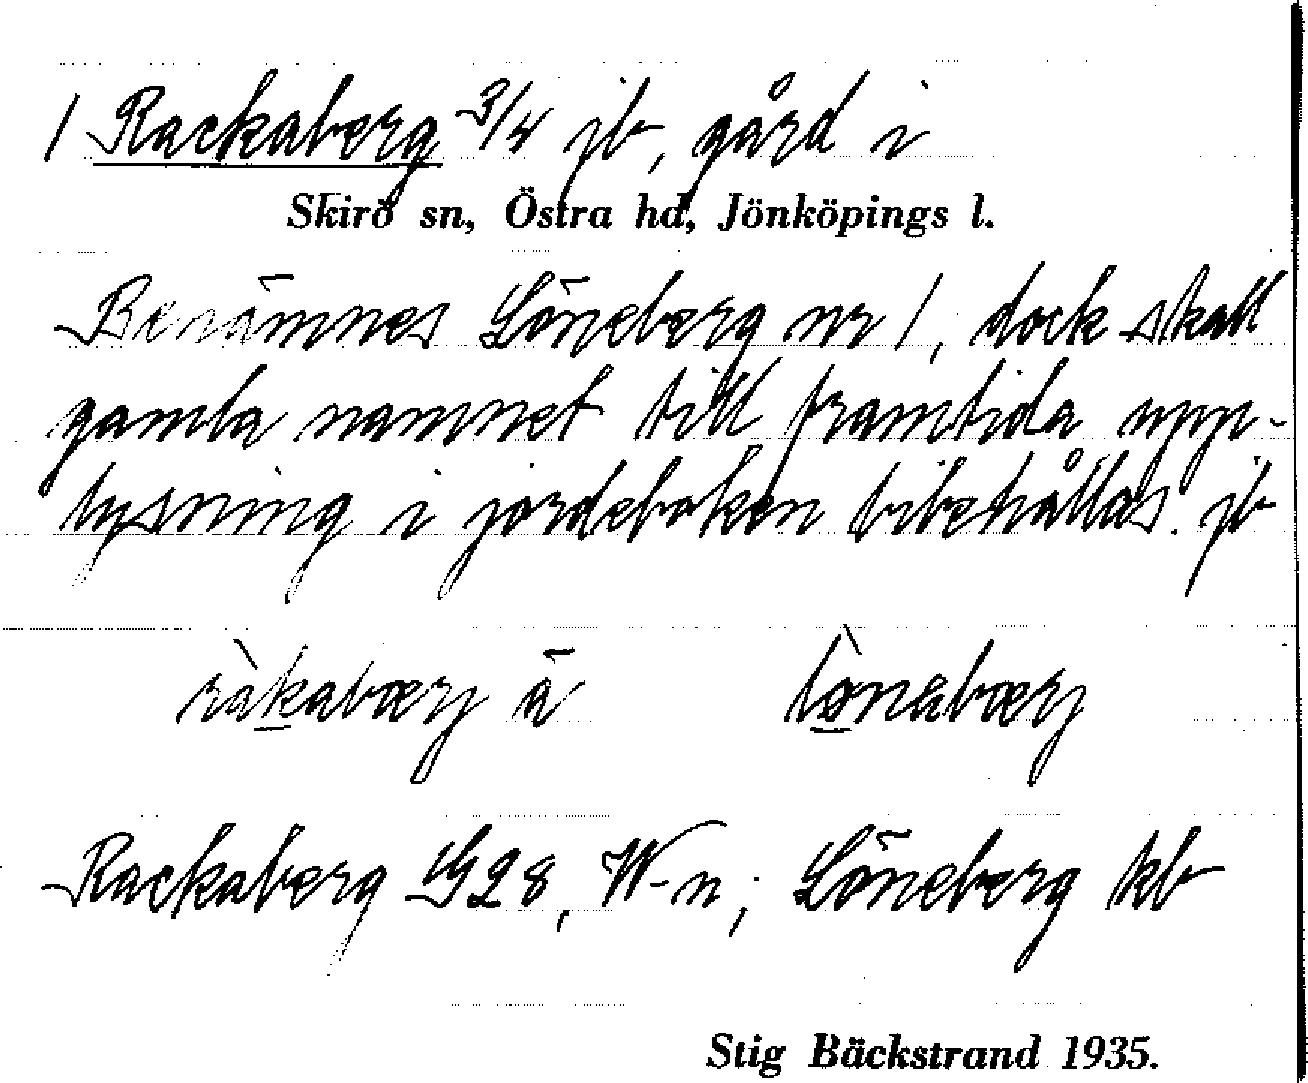 1 Rackaberg 3/4 jb, gård i
Skirö sn, Östra hd, Jönköpings l.
Benämnes Löneberg nr 1, dock skall
gamla namnet till framtida upp-
lysning i jordeboken bibehållas. jb
ràkabærj ā lònebærj
Rackaberg GS 28, W-n; Löneberg kb
Stig Bäckstrand 1935.